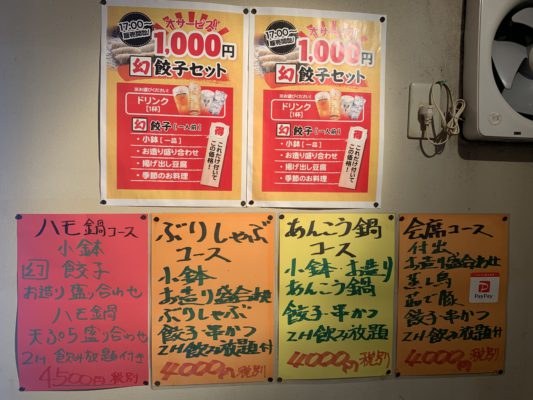 17:00～
販売開始!
大サービス!!
1,000円
幻 餃子セット
ドリンク
[1杯]
幻 餃子[一人前]
・小鉢[一品]
・お造り盛り合わせ
・揚げ出し豆腐
・季節のお料理
得
これだけ付いて
この価格!
17:00～
販売開始!
大サービス!!
1,000円
幻 餃子セット
ドリンク
[1杯]
幻 餃子[一人前]
・小鉢[一品]
・お造り盛り合わせ
・揚げ出し豆腐
・季節のお料理
得
これだけ付いて
この価格!
ハモ鍋コース
小鉢
幻 餃子
お造り盛り合わせ
ハモ鍋
天ぷら盛り合わせ
2H飲み放題付き
4500円税別
ぶりしゃぶ
コース
小鉢
お造り盛合せ
ぶりしゃぶ
餃子・串かつ
2H飲み放題付
4,000円税別
あんこう鍋
コース
小鉢・お造り
あんこう鍋
餃子・串かつ
2H飲み放題
4,000円税別
会席コース
付出
お造り盛合わせ
蒸し鳥
茹で豚
餃子・串かつ
2H飲み放題付
4,000円税別
PayPay